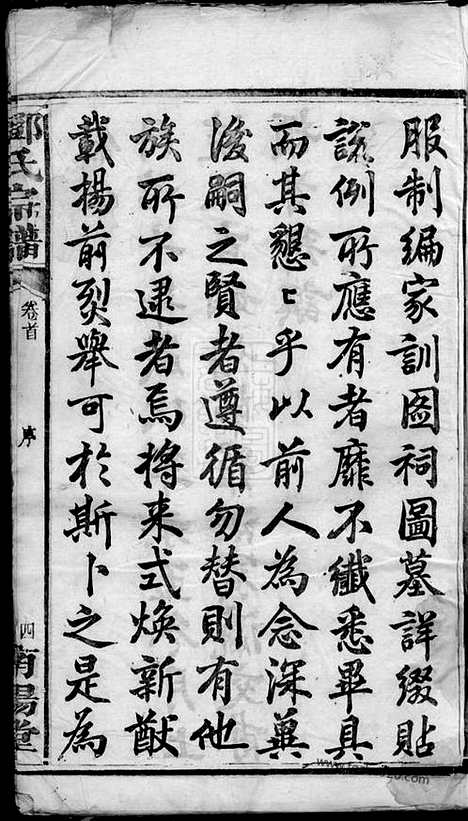 服制编家訓圖祠圖墓詳綴貼
說例所應有者靡不纖悉畢具
而其懇〻乎以前人為念深冀
後嗣之賢者遵循勿替則有他
族所不逮者焉將来式煥新猷
載揚前烈舉可於斯卜之是為
鄧氏宗譜
卷首
序
四
南陽堂